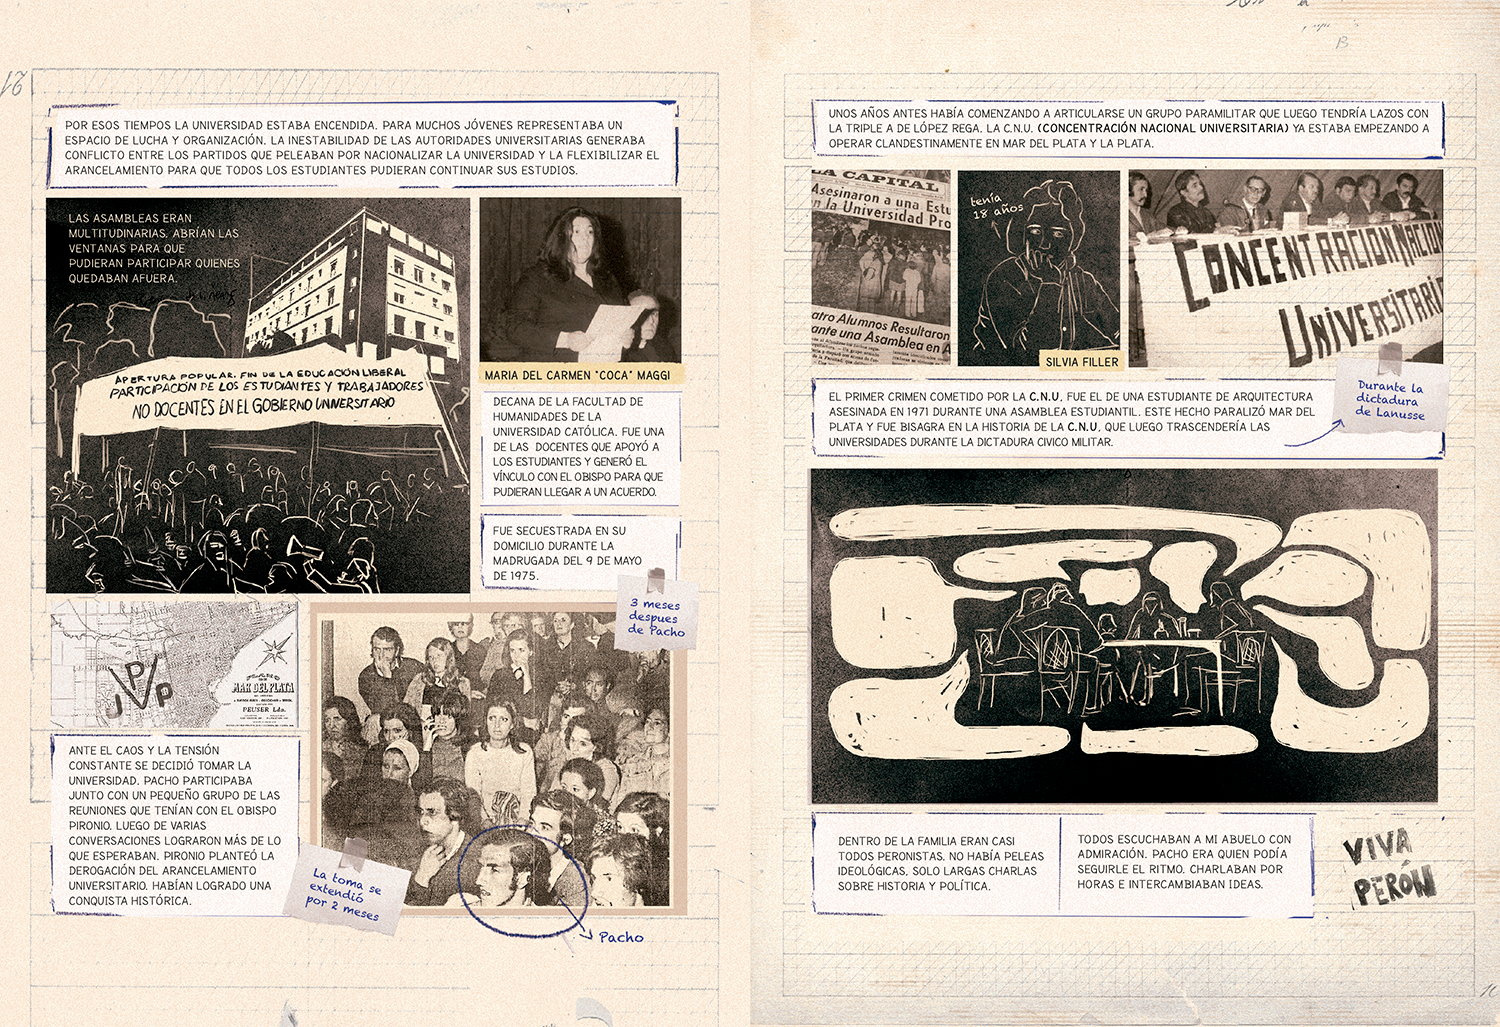 POR ESOS TIEMPOS LA UNIVERSIDAD ESTABA ENCENDIDA. PARA MUCHOS JÓVENES REPRESENTABA UN
ESPACIO DE LUCHA Y ORGANIZACIÓN. LA INESTABILIDAD DE LAS AUTORIDADES UNIVERSITARIAS GENERABA
CONFLICTO ENTRE LOS PARTIDOS QUE PELEABAN POR NACIONALIZAR LA UNIVERSIDAD Y LA FLEXIBILIZAR EL
ARANCELAMIENTO PARA QUE TODOS LOS ESTUDIANTES PUDIERAN CONTINUAR SUS ESTUDIOS.
LAS ASAMBLEAS ERAN
MULTITUDINARIAS. ABRÍAN LAS
VENTANAS PARA QUE
PUDIERAN PARTICIPAR QUIENES
QUEDABAN AFUERA.
APERTURA POPULAR. FIN DE LA EDUCACIÓN LIBERAL
PARTICIPACIÓN DE LOS ESTUDIANTES Y TRABAJADORES
NO DOCENTES EN EL GOBIERNO UNIVERSITARIO
MARIA DEL CARMEN "COCA" MAGGI
DECANA DE LA FACULTAD DE
HUMANIDADES DE LA
UNIVERSIDAD CATÓLICA. FUE UNA
DE LAS DOCENTES QUE APOYÓ A
LOS ESTUDIANTES Y GENERÓ EL
VÍNCULO CON EL OBISPO PARA QUE
PUDIERAN LLEGAR A UN ACUERDO.
FUE SECUESTRADA EN SU
DOMICILIO DURANTE LA
MADRUGADA DEL 9 DE MAYO
DE 1975.
3 meses
despues
de Pacho
JPP
MAR DEL PLATA
PEUSER Lda.
ANTE EL CAOS Y LA TENSIÓN
CONSTANTE SE DECIDIÓ TOMAR LA
UNIVERSIDAD. PACHO PARTICIPABA
JUNTO CON UN PEQUEÑO GRUPO DE LAS
REUNIONES QUE TENÍAN CON EL OBISPO
PIRONIO. LUEGO DE VARIAS
CONVERSACIONES LOGRARON MÁS DE LO
QUE ESPERABAN. PIRONIO PLANTEÓ LA
DEROGACIÓN DEL ARANCELAMIENTO
UNIVERSITARIO. HABÍAN LOGRADO UNA
CONQUISTA HISTÓRICA.
La toma se
extendió
por 2 meses
Pacho
UNOS AÑOS ANTES HABÍA COMENZANDO A ARTICULARSE UN GRUPO PARAMILITAR QUE LUEGO TENDRÍA LAZOS CON
LA TRIPLE A DE LÓPEZ REGA. LA C.N.U. (CONCENTRACIÓN NACIONAL UNIVERSITARIA) YA ESTABA EMPEZANDO A
OPERAR CLANDESTINAMENTE EN MAR DEL PLATA Y LA PLATA.
LA CAPITAL
Asesinaron a una Estu
en la Universidad Pro
atro Alumnos Resultaron
ante una Asamblea en A
tenía
18 años
SILVIA FILLER
CONCENTRACION NACION
UNIVERSITARIA
EL PRIMER CRIMEN COMETIDO POR LA C.N.U. FUE EL DE UNA ESTUDIANTE DE ARQUITECTURA
ASESINADA EN 1971 DURANTE UNA ASAMBLEA ESTUDIANTIL. ESTE HECHO PARALIZÓ MAR DEL
PLATA Y FUE BISAGRA EN LA HISTORIA DE LA C.N.U. QUE LUEGO TRASCENDERÍA LAS
UNIVERSIDADES DURANTE LA DICTADURA CIVICO MILITAR.
Durante la
dictadura
de Lanusse
DENTRO DE LA FAMILIA ERAN CASI
TODOS PERONISTAS. NO HABÍA PELEAS
IDEOLÓGICAS, SOLO LARGAS CHARLAS
SOBRE HISTORIA Y POLÍTICA.
TODOS ESCUCHABAN A MI ABUELO CON
ADMIRACIÓN. PACHO ERA QUIEN PODÍA
SEGUIRLE EL RITMO. CHARLABAN POR
HORAS E INTERCAMBIABAN IDEAS.
VIVA
PERÓN